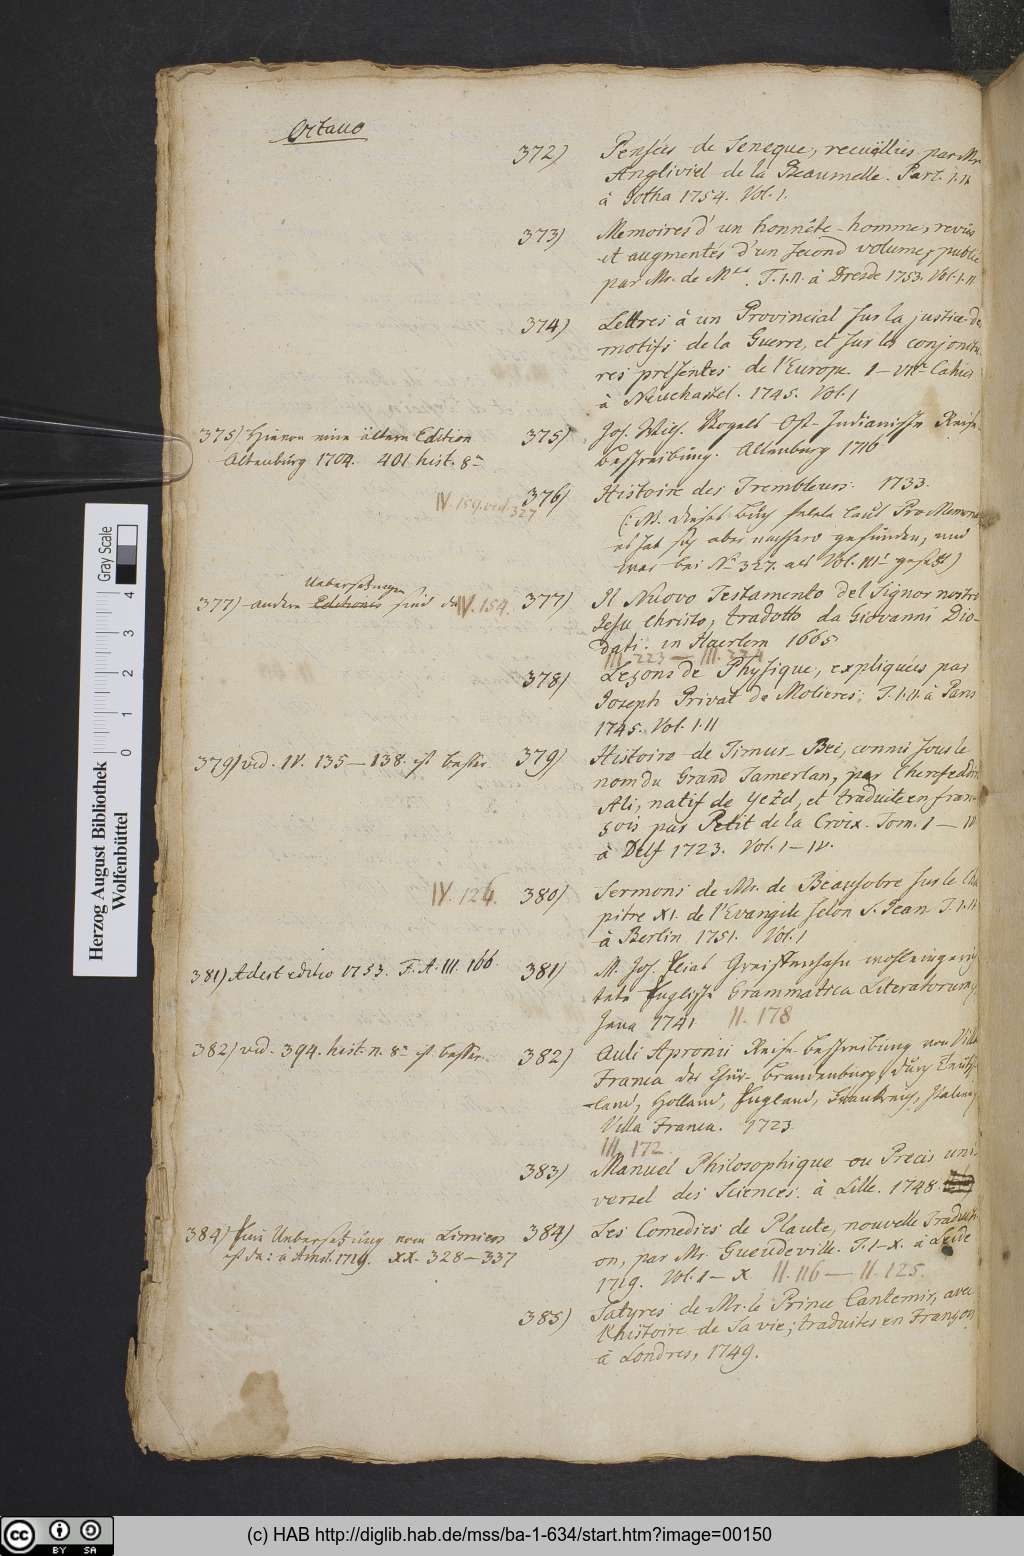 Octavo
372) Pensées de Seneque, recueillies par Mr.
Angliviel de la Beaumelle. Part. I. II
à Gotha 1754. Vol. I.
373) Memoires d'un honnête-homme, revûs
et augmentés d'un second volume, publié
par Mr. de M. T. I. II. à Dresde 1753. Vol. I. II.
374) Lettres à un Provincial sur la justice des
motifs de la Guerre, et sur les conjonctu-
res présentes de l'Europe. I — VII Cahier
à Neuchastel. 1745. Vol. I
375) Hievon eine ältere Edition
Altenburg 1704. 401. hist. 8
375) Joh. Wilh. Vogels Ost-Indianische Reise-
beschreibung. Altenburg 1716
376) Histoire des Trembleurs. 1733.
IV. 159. vid. 327
(: NB. dieses Buch fehlete laut Pro Memoria
es hat sich aber nachhero gefunden, und
war bei No. 327. als Vol. III gesetzt)
377) andere Editiones sind da
Uebersetzungen
IV. 154.
377) Il Nuovo Testamento del Signor nostro
Jesu Christo, tradotto da Giovanni Dio-
dati. in Haerlem 1665
III. 223 — III. 224
378) Leçons de Physique, expliquées par
Joseph Privat de Molieres; T. I. II. à Paris
1745. Vol. I. II
379) vid. IV. 135 — 138. ist besser
379) Histoire de Timur-Bec, connu sous le
nom du Grand Tamerlan, par Cherefeddin
Ali, natif de Yezd, et traduite en fran-
çois par Petit de la Croix. Tom. I — IV
à Delf 1723. Vol. I — IV.
IV. 126.
380) Sermons de Mr. de Beausobre sur le Cha
pitre XI. de l'Evangile selon S. Jean T. I. II
à Berlin 1751. Vol. I
381) Adest editio 1753. F. A. III. 166.
381) M. Joh. Elias Greiffenhahn wohleingerich
tete Englische Grammatica Literatorum,
Jena 1741 II. 178
382) vid. 394. hist. n. 8 ist besser.
382) Auli Apronii Reise-beschreibung von Villa
Franca der Chur-Brandenburg durch Teutsch-
land, Holland, Engeland, Frankreich, Italien,
Villa Franca. 1723
III. 172
383) Manuel Philosophique ou Precis uni-
versel des Sciences. à Lille. 1748.
384) Eine Uebersetzung vom Limiers
ist da: à Amst. 1719. XX. 328 — 337
384) Les Comedies de Plaute, nouvelle Traducti-
on, par Mr. Gueudeville. T. I — X. à Leide
1719. Vol. I — X II. 116 — II. 125.
385) Satyres de Mr. le Prince Cantemir, avec
l'histoire de sa vie; traduites en François
à Londres, 1749.
Herzog August Bibliothek
Wolfenbüttel
Gray Scale
0 1 2 3 4
cc BY SA
(c) HAB http://diglib.hab.de/mss/ba-1-634/start.htm?image=00150